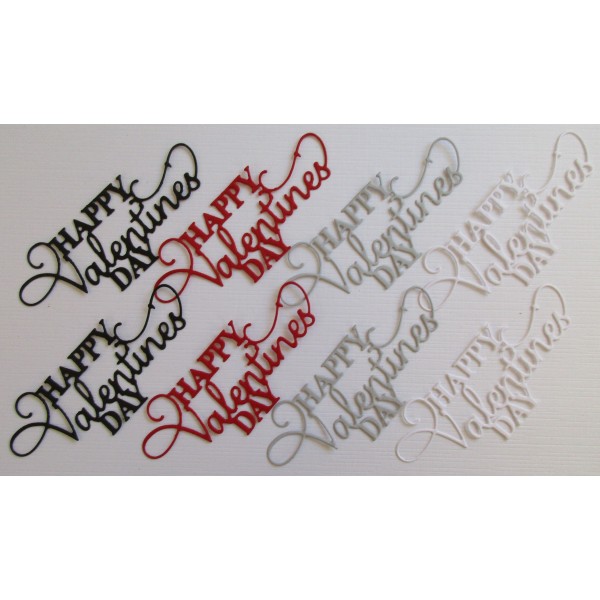 HAPPY
Valentines
DAY
HAPPY
Valentines
DAY
HAPPY
Valentines
DAY
HAPPY
Valentines
DAY
HAPPY
Valentines
DAY
HAPPY
Valentines
DAY
HAPPY
Valentines
DAY
HAPPY
Valentines
DAY